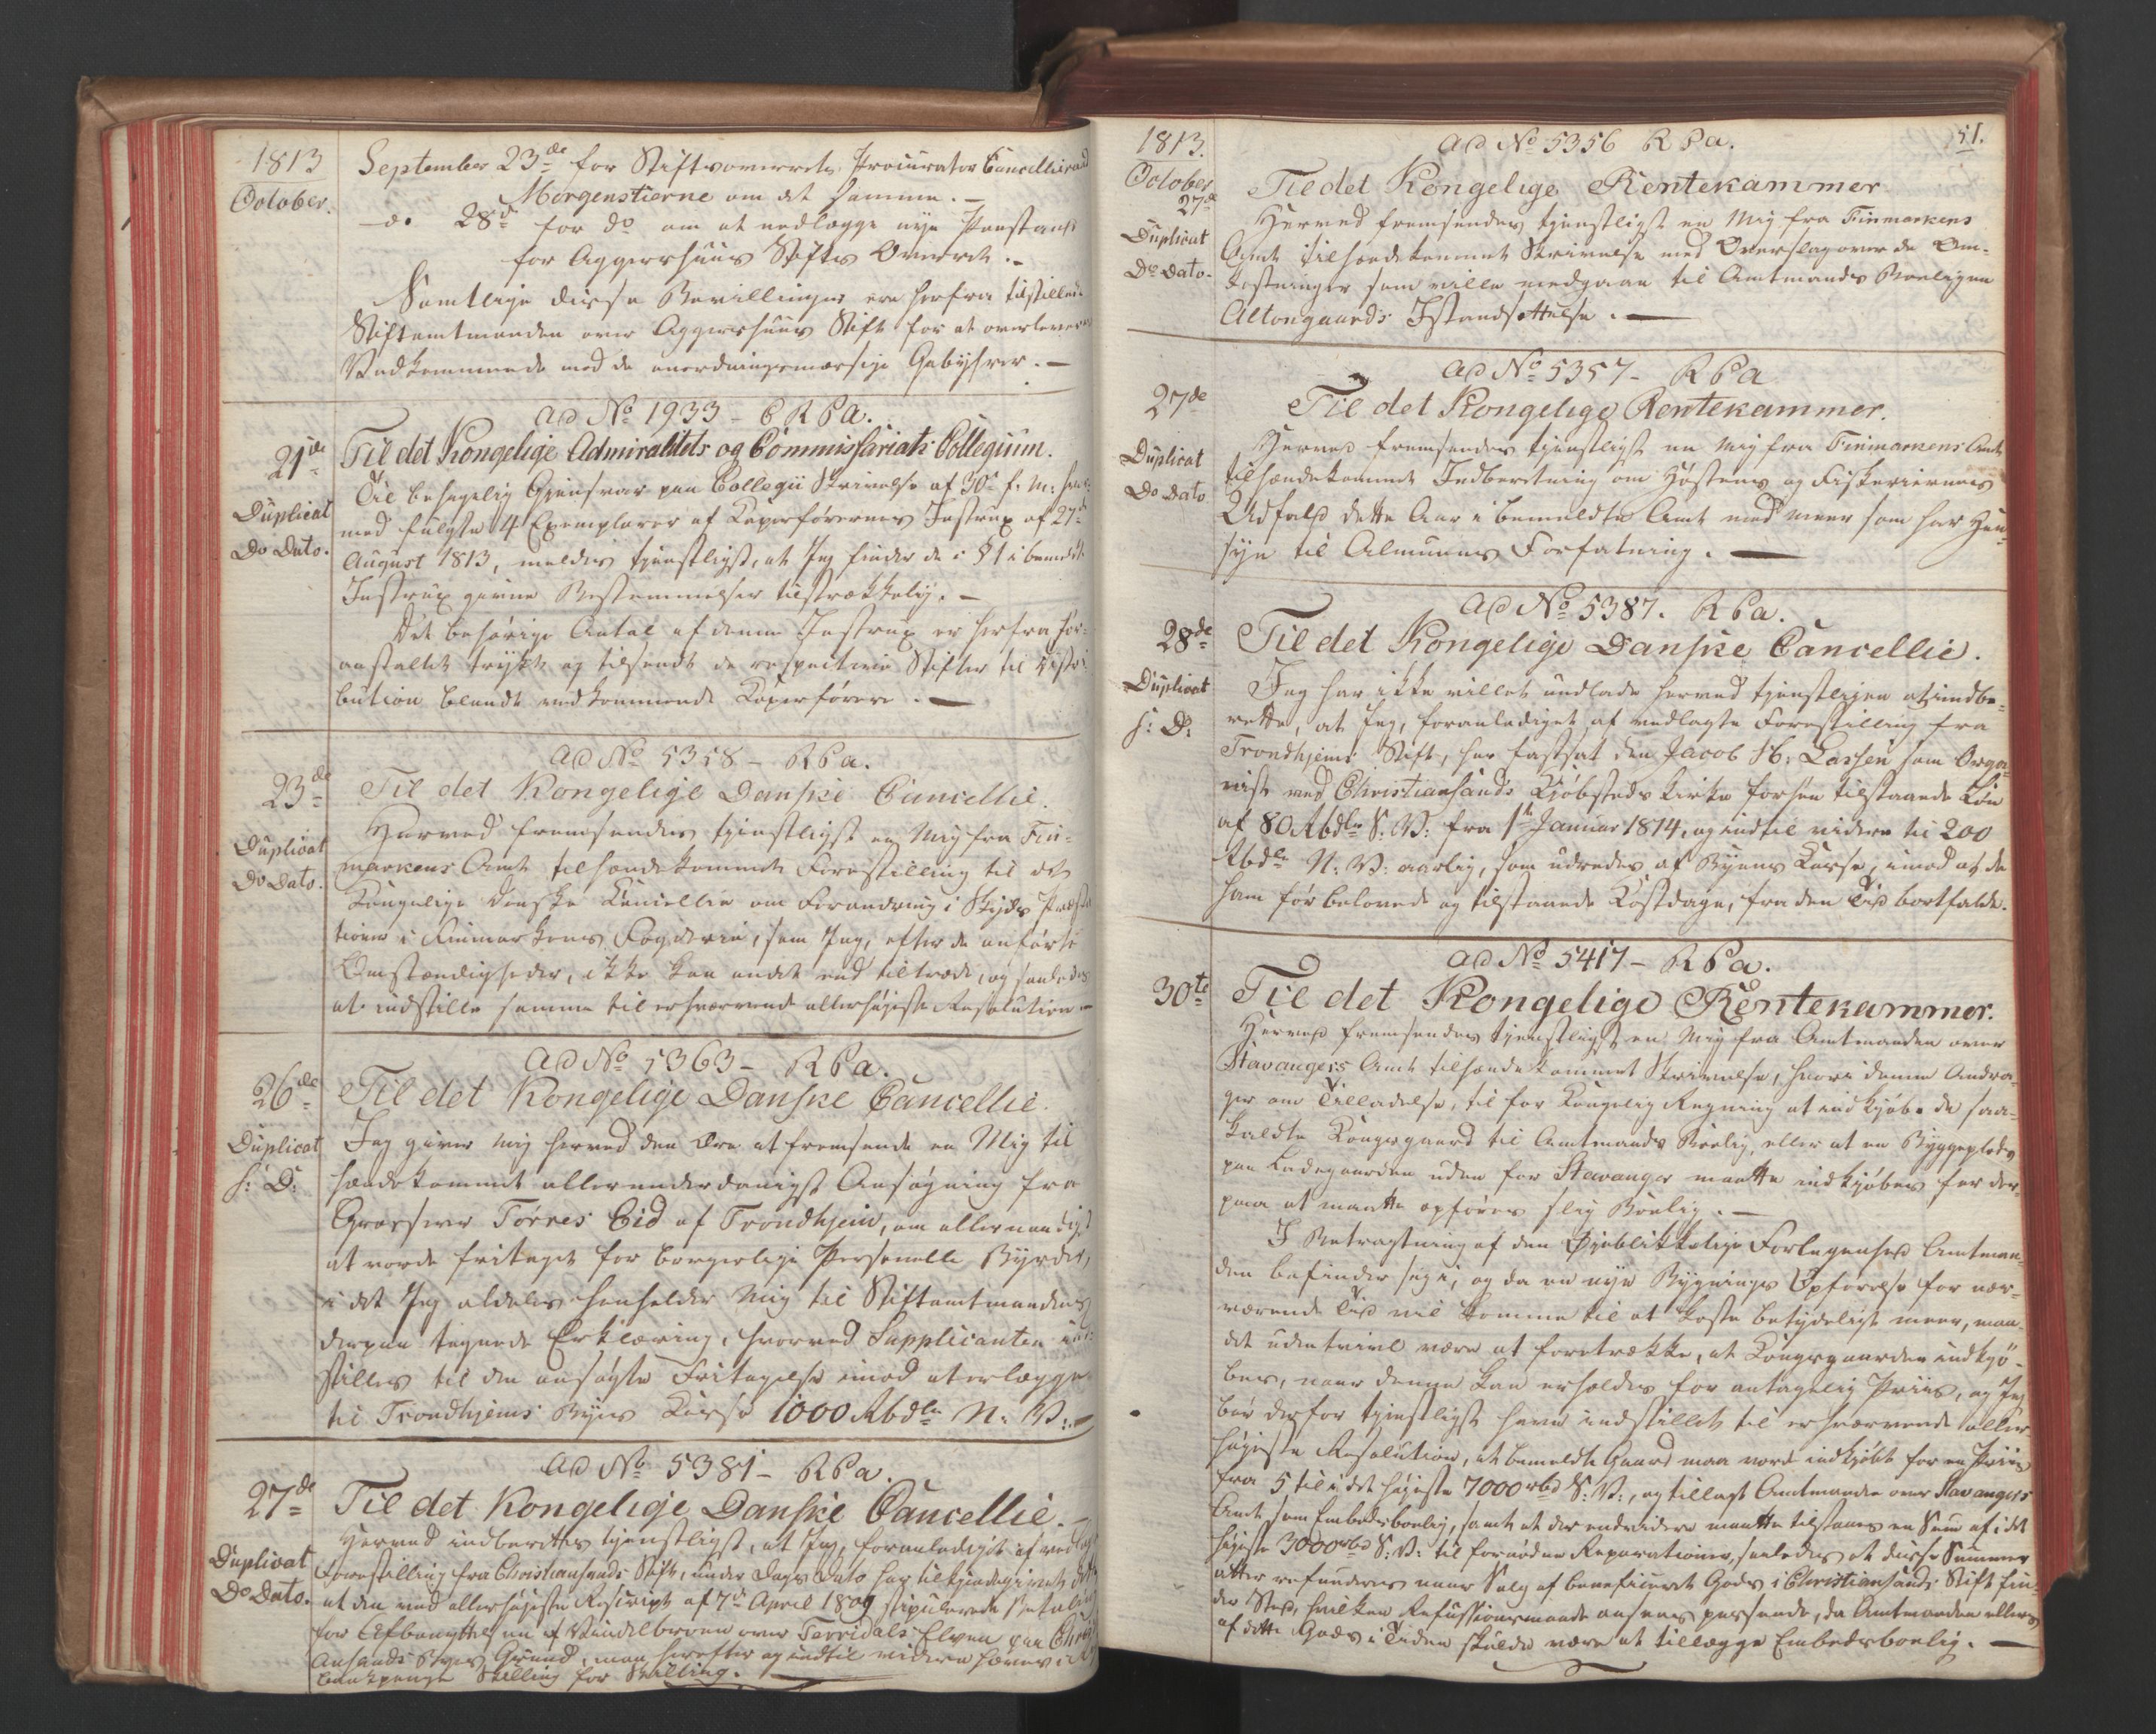 1813
October.
September 23de for Stiftsoverrets Procurator Cancelliraad
Morgenstierne om det samme. –
– d. 28d for do om at nedlægge nye Paastand
for Aggershuus Stifts Overret. –
Samtlige disse Bevillinger ere herfra tilstillede
Stiftamtmanden over Aggershuus Stift for at overleveres
Vedkommende mod de anordningsmæssige Gebyhrer. –
ad No 1933 – C R P a.
21de
Duplicat
Do Dato.
Til det Kongelige Admiralitets og Commissariats Collegium.
Til behagelig Gjensvar paa Collegii Skrivelse af 30d f. M: hvor-
med fulgte 4 Exemplarer af Kaperførernes Instrux af 27d
August 1813, meldes tjenstligst, at Jeg finder de i § 1 i bemeldte
Instrux givne Bestemmelser tilstrækkelig. –
Det behørige Antal af denne Instrux er herfra for-
anstaltet trykt og tilsendt de respective Stifter til Distri-
bution blandt vedkommende Kaperførere. –
ad No 5358 – R P a.
23de
Duplicat
Do Dato.
Til det Kongelige Danske Cancellie.
Herved fremsendes tjenstligst en Mig fra Fin-
markens Amt tilhændekommet Forestilling til det
Kongelige Danske Cancellie om Forandring i Skyds Præsta-
tionen i Finmarkens Fogderie, som Jeg, efter de anførte
Omstændigheder, ikke kan andet end tiltræde, og saaledes
at indstille samme til erhvervende allerhøjeste Resolution –
ad No 5363 – R P a.
26de
Duplicat
s: D:
Til det Kongelige Danske Cancellie.
Jeg giver mig herved den Ære at fremsende en Mig til
hændekommet allerunderdanigst Ansøgning fra
Grosserer Tørres Eid af Trondhjem, om allernaadigst
at vorde fritaget for borgerlige Personelle Byrder,
i det Jeg aldeles henholder Mig til Stiftamtmandens
derpaa tegnede Erklæring, hvorved Supplicanten ind-
stilles til den ansøgte Fritagelse imod at erlægge
til Trondhjems Byes Kasse 1000 Rbdlr N: V: –
ad No 5381 – R P a.
27de
Duplicat
Do Dato.
Til det Kongelige Danske Cancellie. –
Herved indberettes tjenstligst, at Jeg, foranlediget af vedlagte
Forestilling fra Christiansands Stift, under Dags Dato har tilkjendegivet dette
at den ved allerhøjeste Rescript af 7d April 1809 stipulerede Betaling
for Afbenyttelsen af Vindelbroen over Torridals Elven paa Christi-
ansands Byes Grund, maa herefter og indtil videre hæves i
bankpenge Skilling for Skilling. –
51.
1813.
October
27de
Duplicat
Do Dato.
ad No 5356 R P a.
Til det Kongelige Rentekammer
Herved fremsendes tjenstligst en Mig fra Finmarkens
Amt tilhændekommet Skrivelse med Overslag over de Om-
kostninger som ville medgaae til Amtmands Boeligen
Altengaards Istandsættelse. –
27de
Duplicat
Do Dato
ad No 5357 – R P a
Til det Kongelige Rentekammer.
Herved fremsendes tjenstligst en Mig fra Finmarkens Amt
tilhændekommet Indberetning om Høstens og Fiskeriernes
Udfald dette Aar i bemeldte Amt med meer som har Hen-
syn til Almuens Forfatning. –
28de
Duplicat
s: D:
ad No 5387. R P a.
Til det Kongelige Danske Cancellie.
Jeg har ikke villet undlade herved tjenstligen at indbe-
rette, at Jeg, foranlediget af vedlagte Forestilling fra
Trondhjems Stift, har fastsat den Jacob H: Lassen som Orga-
nist ved Christiansunds Kjøbsteds Kirke forhen tilstaaede Løn
af 80 Rbdlr S: V: fra 1te Januar 1814, og indtil videre til 200
Rbdlr N: V: aarlig, som udredes af Byens Kasse, imod at de
ham før belovede og tilstaaede Kostdage, fra den Tid bortfalde.
30te
ad No 5417 – R P a.
Til det Kongelige Rentekammer.
Herved fremsendes tjenstligst en Mig fra Amtmanden over
Stavangers Amt tilhændekommet Skrivelse, hvori denne Andra-
ger om Tilladelse, til for Kongelig Regning at indkjøbe de saa-
kaldte Kongsgaard til Amtmands Boelig, eller at en Byggeplads
paa Ladegaarden uden for Stavanger maatte indkjøbes for der-
paa at maatte opføres slig Boelig. –
I Betragtning af den Øjeblikkelige Forlegenhed Amtman-
den befinder sig i, og da en nye Bygnings Opførelse for nær-
værende Tid vil komme til at koste betydeligt meer, maa-
det udentvivl være at foretrække, at Kongsgaarden indkjø-
bes, naar denne kan erholdes for antagelig Priis, og Jeg
bør derfor tjenstligst have indstillet til erhvervende aller-
højeste Resolution, at bemeldte Gaard maa vorde indkjøbt for en Priis
fra 5 til i det højeste 7000 rbd S: V:, og tillagt Amtmanden over Stavangers
Amt som Embedsboelig, samt at der endvidere maatte tilstaaes en Sum af i det
højeste 3000 rbd S: V: til fornødne Reparationer, saaledes at disse Summer
atter refunderes naar Salg af beneficeret Gods i Christiansands Stift fin-
der Sted, hvilken Refussionsmaade ansees passende, da Amtmanden ellers
af dette Gods i Tiden skulde være at tillægge Embedsboelig. –